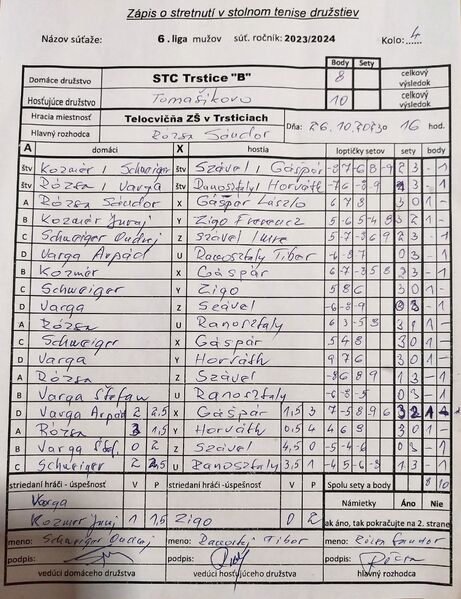 Zápis o stretnutí v stolnom tenise družstiev
Názov súťaže: 6. liga mužov súť. ročník: 2023/2024 Kolo: 4
Body Sety
Domáce družstvo STC Trstice "B" 8 celkový výsledok
Hosťujúce družstvo Tomašikovo 10 celkový výsledok
Hracia miestnosť Telocvičňa ZŠ v Trsticiach
Hlavný rozhodca Rózsa Sándor Dňa: 26.10.2023 o 16 hod.
A domáci X hostia loptičky setov sety body
štv Kozmer / Schweiger štv Szável / Gáspár 2 3 - 1
štv Rózsa / Varga štv Ranosztaly Horváth -7 6 -8 -9 1 3 - 1
A Rózsa Sándor X Gáspár László 6 7 8 3 0 1 -
B Kozmer Juraj Y Zigo Ferenc 3 2 1 -
C Schweiger Ondrej Z Szável Imre 5 -7 -8 6 9 2 3 - 1
D Varga Arpád U Ranosztaly Tibor -6 -8 7 0 3 - 1
B Kozmér X Gáspár 6 -7 3 2 1 -
C Schweiger Y Zigo 5 8 6 3 0 1 -
D Varga Z Szável -6 -8 -9 0 3 - 1
A Rózsa U Ranosztaly 6 3 -5 8 3 1 1 -
C Schweiger X Gáspár 5 4 8 3 0 1 -
D Varga Y Horváth 9 7 6 3 0 1 -
A Rózsa Z Szável -8 6 8 9 1 3 - 1
B Varga Štefan U Ranosztaly -6 -8 -5 0 3 - 1
D Varga Arpád 2 2,5 X Gáspár 1,5 3 7 -5 8 9 6 3 2 1
A Rózsa 3 1,5 Y Horváth 0,5 4 4 6 9 3 0 1 -
B Varga Štef. 0 2 Z Szável 4,5 0 -5 -4 -6 0 3 - 1
C Schweiger 2 2,5 U Ranosztaly 3,5 1 -4 5 -6 -8 1 3 - 1
striedaní hráči - úspešnosť V P striedaní hráči - úspešnosť V P Spolu sety a body 8 10
Varga Námietky Áno Nie
Kozmer Juraj 1 1,5 Zigo 0 2 ak áno, tak pokračujte na 2. strane
meno: Schweiger Ondrej meno: Ranosztaly Tibor meno: Rózsa Sandor
podpis: podpis: podpis: Rózsa
vedúci domáceho družstva vedúci hosťujúceho družstva hlavný rozhodca